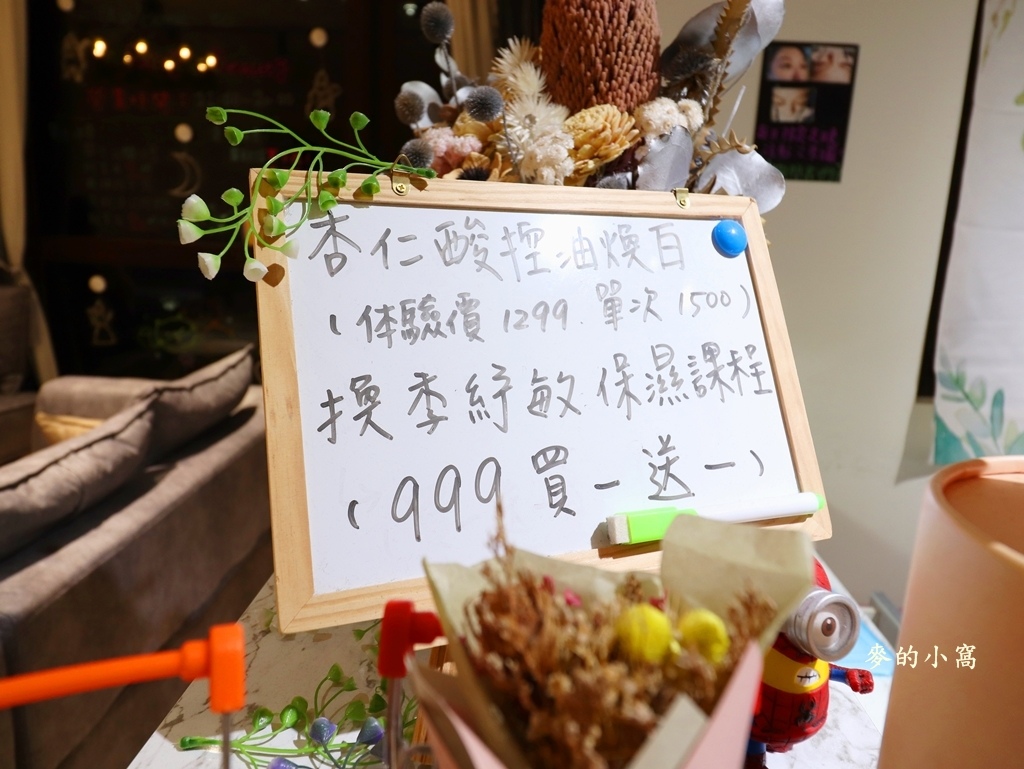 杏仁酸控油煥白
(体驗價1299 單次1500)
換季紓敏保濕課程
(999買一送一)
麥的小窩